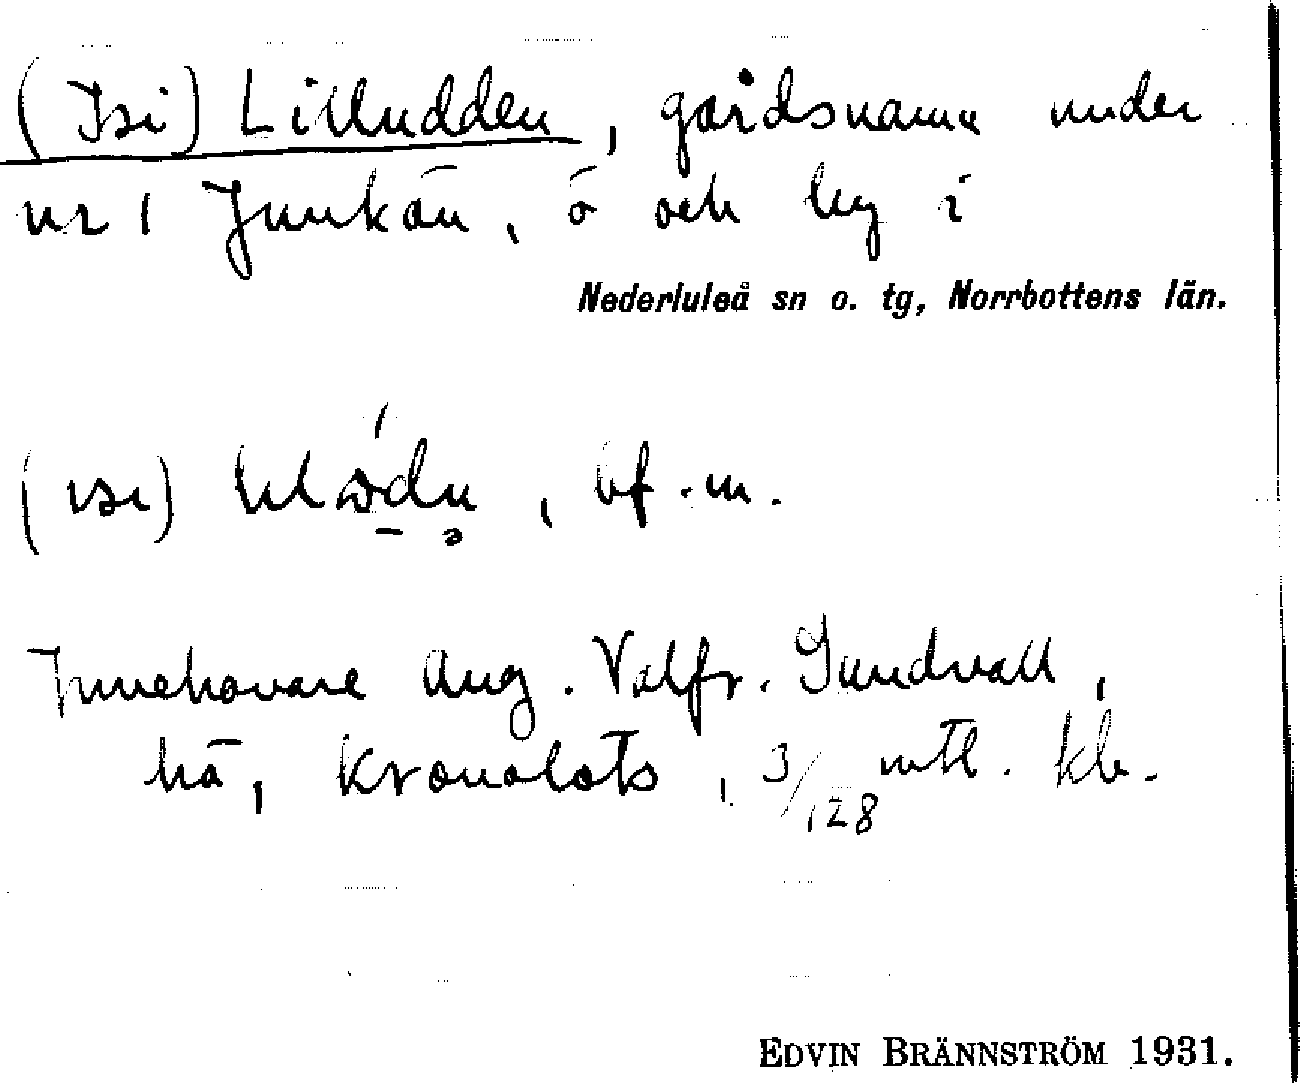 (Isi) Lilludden, gårdsnamn under
nr 1 Junkön, ö och by i
Nederluleå sn o. tg, Norrbottens län.
(ısı) , bf. m.
Innehavare Aug. Valfr. Sundvall,
hä, kronolots, 3/128 mtl. kr.
EDVIN BRÄNNSTRÖM 1931.